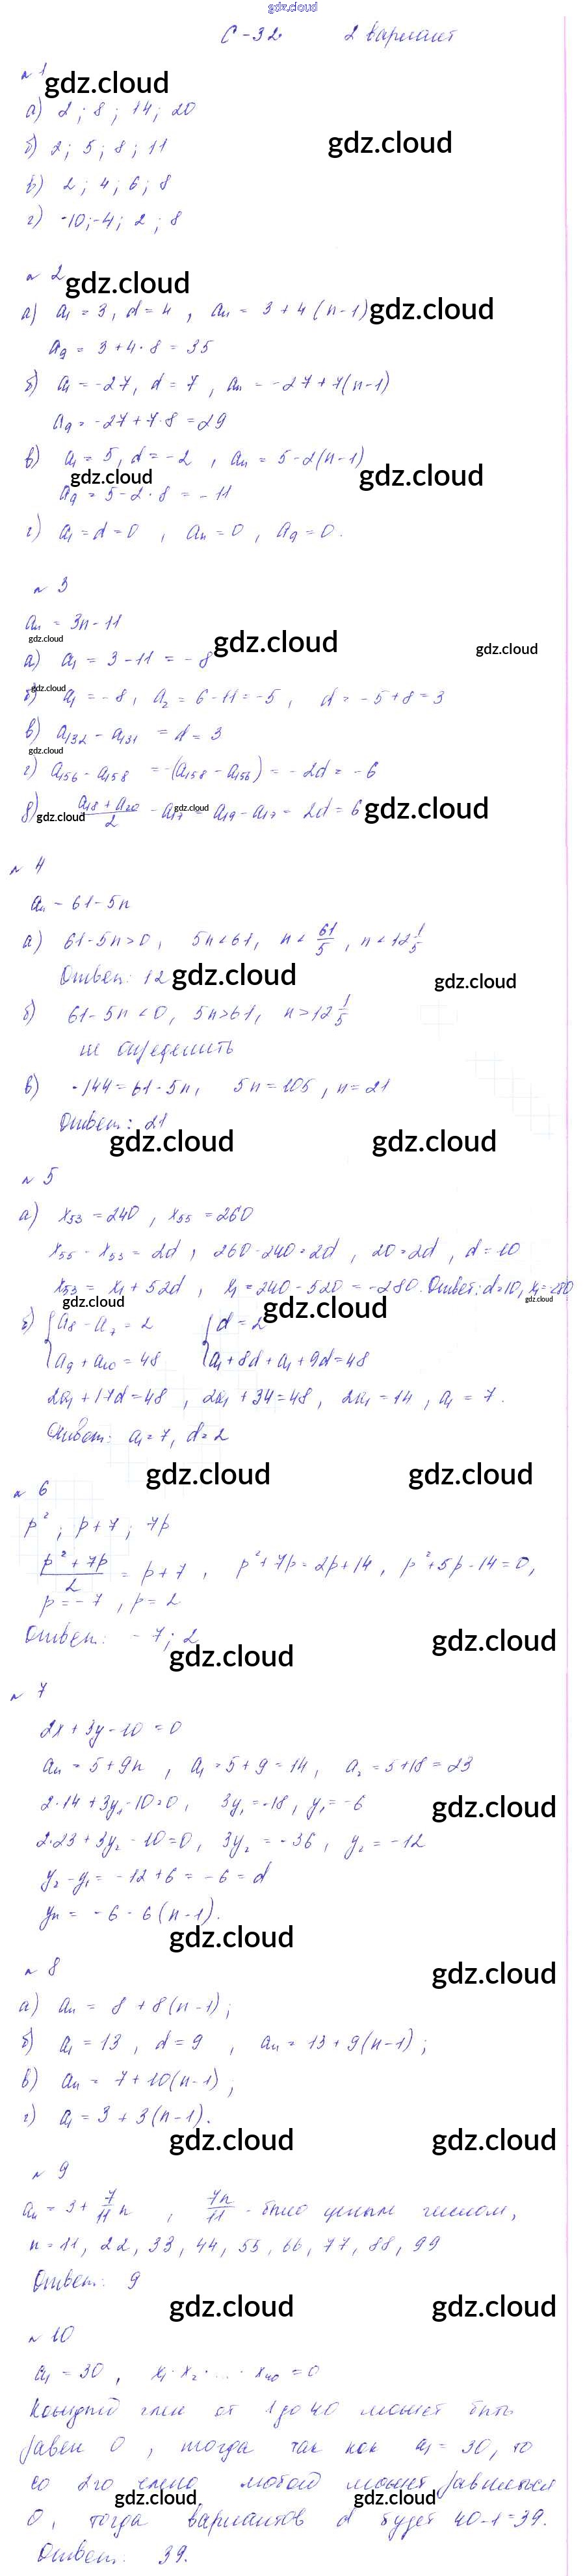 gdz.cloud
С-32 2 вариант
№1 gdz.cloud
а) 2; 8; 14; 20
gdz.cloud
б) 2; 5; 8; 11
в) 2; 4; 6; 8
г) -10; -4; 2; 8
№ 2 gdz.cloud
а) a₁ = 3, d = 4, aₙ = 3 + 4(n-1) gdz.cloud
a₉ = 3 + 4·8 = 35
б) a₁ = -27, d = 7, aₙ = -27 + 7(n-1)
a₉ = -27 + 7·8 = 29
в) a₁ = 5, d = -2, aₙ = 5 - 2(n-1)
gdz.cloud gdz.cloud
a₉ = 5 - 2·8 = -11
г) a₁ = d = 0, aₙ = 0, a₉ = 0.
№ 3
aₙ = 3n - 11
gdz.cloud gdz.cloud gdz.cloud
а) a₁ = 3 - 11 = -8
gdz.cloud
б) a₁ = -8, a₂ = 6 - 11 = -5, d = -5 + 8 = 3
в) a₁₃₂ - a₁₃₁ = d = 3
gdz.cloud
г) a₁₅₆ - a₁₅₈ = -(a₁₅₈ - a₁₅₆) = -2d = -6
д) (a₁₈ + a₂₀)/2 - a₁₇ = a₁₉ - a₁₇ = 2d = 6 gdz.cloud
gdz.cloud gdz.cloud
№ 4
aₙ = 61 - 5n
а) 61 - 5n > 0, 5n < 61, n < 61/5, n < 12 1/5
Ответ: 12 gdz.cloud gdz.cloud
б) 61 - 5n < 0, 5n > 61, n > 12 1/5
не определить
в) -144 = 61 - 5n, 5n = 105, n = 21
Ответ: 21
gdz.cloud gdz.cloud
№ 5
а) x₅₃ = 240, x₅₅ = 260
x₅₅ - x₅₃ = 2d, 260 - 240 = 2d, 20 = 2d, d = 10
x₅₃ = x₁ + 52d, x₁ = 240 - 520 = -280. Ответ: d = 10, x₁ = -280
gdz.cloud gdz.cloud gdz.cloud
б) { a₈ - a₇ = 2 { d = 2
a₉ + a₁₀ = 48 a₁ + 8d + a₁ + 9d = 48
2a₁ + 17d = 48, 2a₁ + 34 = 48, 2a₁ = 14, a₁ = 7.
Ответ: a₁ = 7, d = 2
gdz.cloud gdz.cloud
№ 6
p²; p + 7; 7p
(p² + 7p)/2 = p + 7, p² + 7p = 2p + 14, p² + 5p - 14 = 0,
p = -7, p = 2
Ответ: -7; 2
gdz.cloud gdz.cloud
№ 7
2x + 3y - 10 = 0
aₙ = 5 + 9n, a₁ = 5 + 9 = 14, a₂ = 5 + 18 = 23
2·14 + 3y₁ - 10 = 0, 3y₁ = -18, y₁ = -6 gdz.cloud
2·23 + 3y₂ - 10 = 0, 3y₂ = -36, y₂ = -12
y₂ - y₁ = -12 + 6 = -6 = d
yₙ = -6 - 6(n-1).
gdz.cloud
№ 8 gdz.cloud
а) aₙ = 8 + 8(n-1);
б) a₁ = 13, d = 9, aₙ = 13 + 9(n-1);
в) aₙ = 7 + 10(n-1);
г) a₁ = 3 + 3(n-1).
gdz.cloud gdz.cloud
№ 9
aₙ = 3 + 7/11 n, 7n/11 - было целым числом,
n = 11, 22, 33, 44, 55, 66, 77, 88, 99
Ответ: 9
gdz.cloud gdz.cloud
№ 10
a₁ = 30, x₁·x₂·...·x₄₀ = 0
Каждый член от 1 до 40 может быть
равен 0, тогда так как a₁ = 30, то
со 2го члена любой может равняться
gdz.cloud gdz.cloud
0, тогда вариантов d будет 40 - 1 = 39.
Ответ: 39.